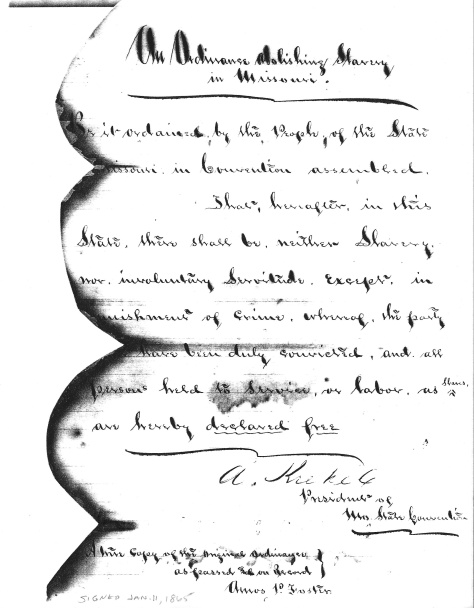 An Ordinance abolishing Slavery
in Missouri.
Be it ordained, by the People, of the State
Missouri, in Convention assembled.
That, hereafter, in this
State, there shall be, neither Slavery,
nor, involuntary Servitude, except, in
unishment of crime, whereof, the party
have been duly convicted, and all
persons held to service, or labor, as slaves,
are hereby declared free
A. Krekel
President of
Mo. State Convention
A true Copy of the original ordinance
as passed & on Record
Amos P. Foster
SIGNED JAN. 11, 1865